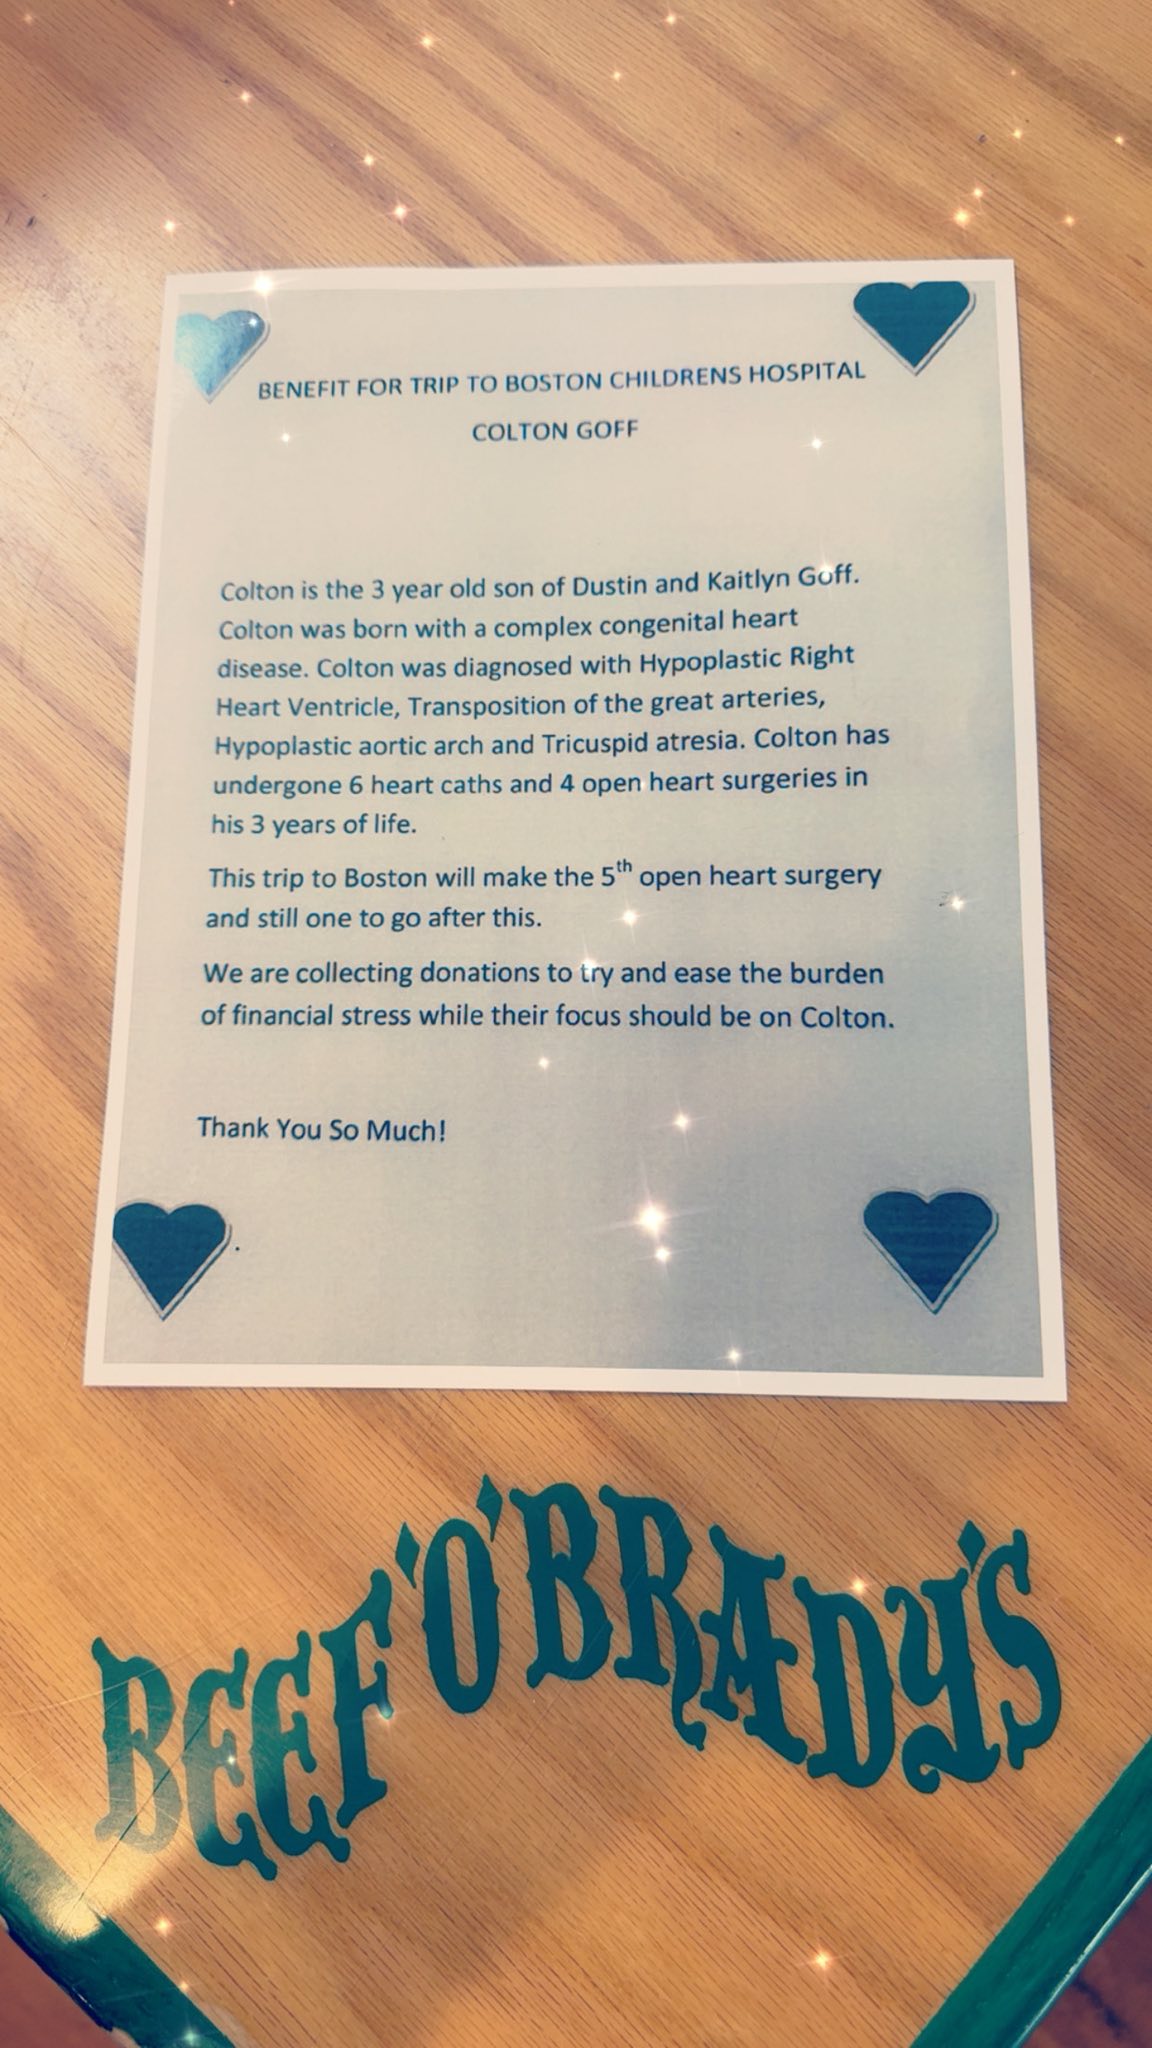 BENEFIT FOR TRIP TO BOSTON CHILDRENS HOSPITAL
COLTON GOFF
Colton is the 3 year old son of Dustin and Kaitlyn Goff.
Colton was born with a complex congenital heart
disease. Colton was diagnosed with Hypoplastic Right
Heart Ventricle, Transposition of the great arteries,
Hypoplastic aortic arch and Tricuspid atresia. Colton has
undergone 6 heart caths and 4 open heart surgeries in
his 3 years of life.
This trip to Boston will make the 5th open heart surgery
and still one to go after this.
We are collecting donations to try and ease the burden
of financial stress while their focus should be on Colton.
Thank You So Much!
BEEF'O'BRADY'S